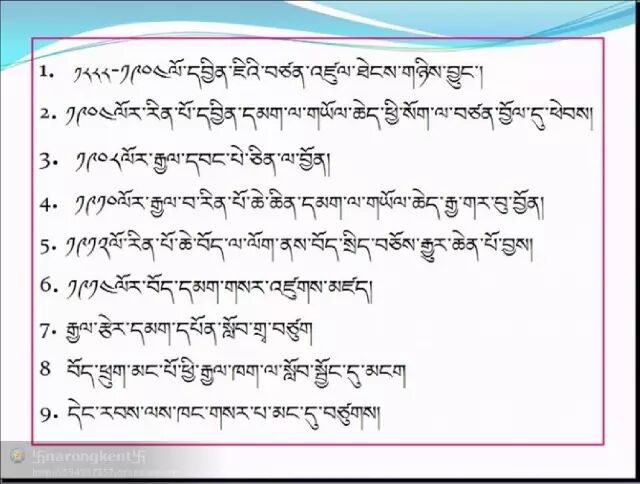 1. ༡༨༨༨-༡༩༠༤ལོ་དབྱིན་ཇིའི་བཙན་འཛུལ་ཐེངས་གཉིས་བྱུང་།
2. ༡༩༠༤ལོར་རིན་པོ་དབྱིན་དམག་ལ་གཡོལ་ཆེད་ཕྱི་སོག་ལ་བཙན་བྱོལ་དུ་ཕེབས།
3. ༡༩༠༨ལོར་རྒྱལ་དབང་པེ་ཅིན་ལ་བྱོན།
4. ༡༩༡༠ལོར་རྒྱལ་བ་རིན་པོ་ཆེ་ཆིན་དམག་ལ་གཡོལ་ཆེད་རྒྱ་གར་བུ་བྱོན།
5. ༡༩༡༢ལོ་རིན་པོ་ཆེ་བོད་ལ་ལོག་ནས་བོད་སྲིད་བཅོས་རྒྱུར་ཆེན་པོ་བྱས།
6. ༡༩༡༤ལོར་བོད་དམག་གསར་འཛུགས་མཛད།
7. རྒྱལ་རྩེར་དམག་དཔོན་སློབ་གྲྭ་བཙུག
8 བོད་ཕྲུག་མང་པོ་ཕྱི་རྒྱལ་ཁག་ལ་སློབ་སྦྱོང་དུ་མངག
9. དེང་རབས་ལས་ཁང་གསར་པ་མང་དུ་བཙུགས།
卐narongkent卐